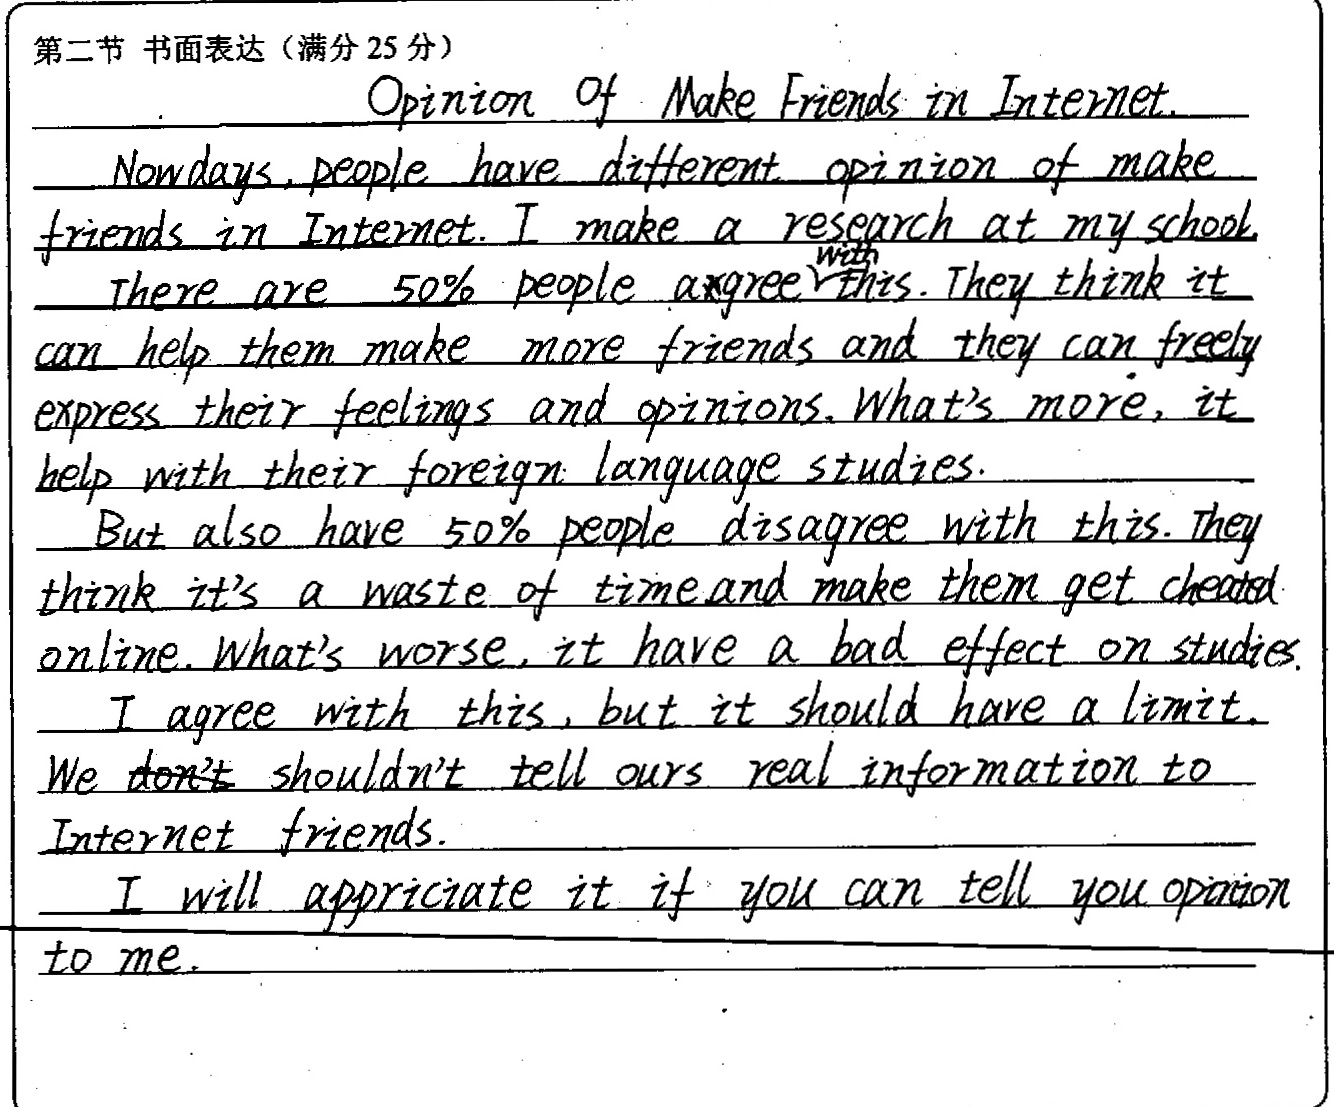 第二节 书面表达（满分 25 分）
Opinion Of Make Friends in Internet.
Nowdays, people have different opinion of make
friends in Internet. I make a research at my school.
There are 50% people agree with this. They think it
can help them make more friends and they can freely
express their feelings and opinions. What's more, it
help with their foreign language studies.
But also have 50% people disagree with this. They
think it's a waste of time and make them get cheated
online. What's worse, it have a bad effect on studies.
I agree with this, but it should have a limit.
We don't shouldn't tell ours real information to
Internet friends.
I will appriciate it if you can tell you opinion
to me.